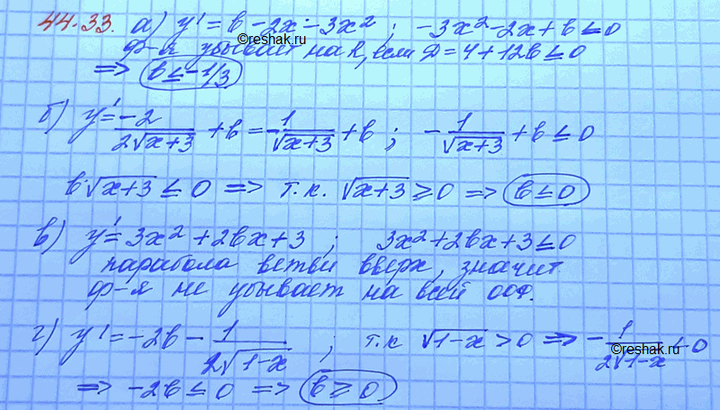 44.33. а) y' = b - 2x - 3x² ; -3x² - 2x + b ≤ 0
Ф-я убывает на R, если Д = 4 + 12b ≤ 0
⇒ b ≤ -1/3
б) y' = -2/(2√(x+3)) + b = -1/√(x+3) + b ; -1/√(x+3) + b ≤ 0
b·√(x+3) ≤ 0 ⇒ т.к. √(x+3) ≥ 0 ⇒ b ≤ 0
в) y' = 3x² + 2bx + 3 ; 3x² + 2bx + 3 ≤ 0
парабола ветви вверх, значит
ф-я не убывает на всей ООФ.
г) y' = -2b - 1/(2√(1-x)) ; т.к √(1-x) > 0 ⇒ -1/(2√(1-x)) < 0
⇒ -2b ≤ 0 ⇒ b ≥ 0
©reshak.ru
©reshak.ru